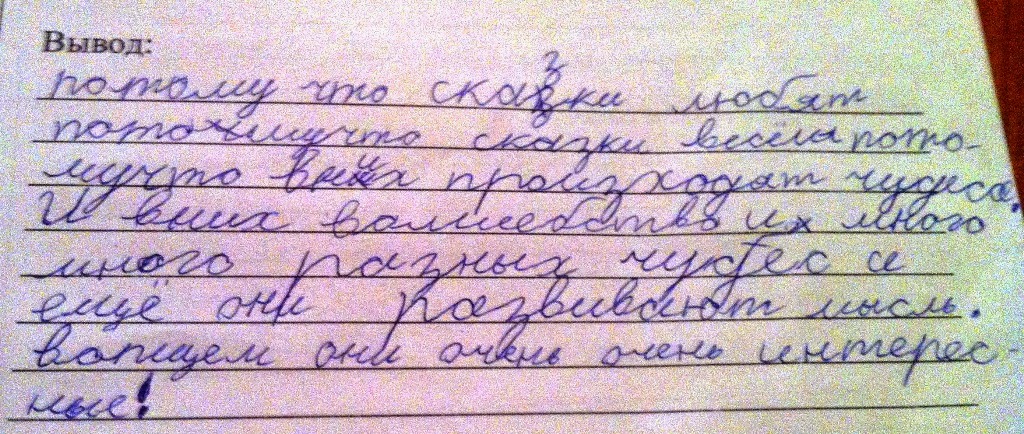 Вывод:
потому что сказки любят
потомучто сказки весёлы пото-
мучто вних произходят чудеса.
И вних валшебства их много
много разных чудес и
ещё они развивают мысль.
вопщем они очень очень интерес-
ные!